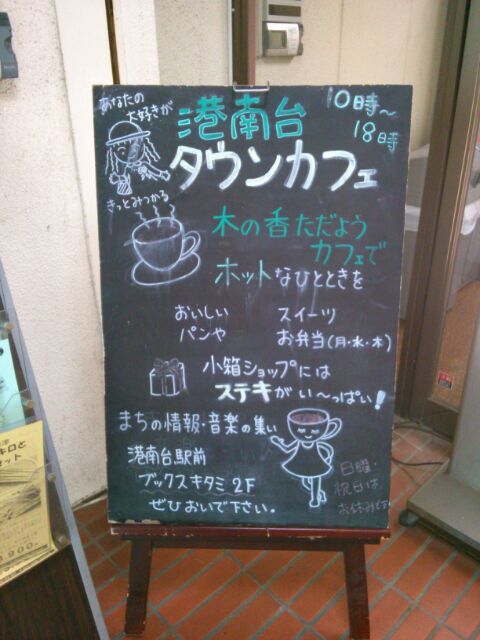 あなたの
大好きが
きっとみつかる
港南台
タウンカフェ
10時〜
18時
木の香ただよう
カフェで
ホットなひとときを
おいしい
パンや
スイーツ
お弁当(月・水・木)
小箱ショップには
ステキがい〜っぱい!
まちの情報・音楽の集い
港南台駅前
ブックスキタミ2F
ぜひおいで下さい。
日曜
祝日は
お休みです